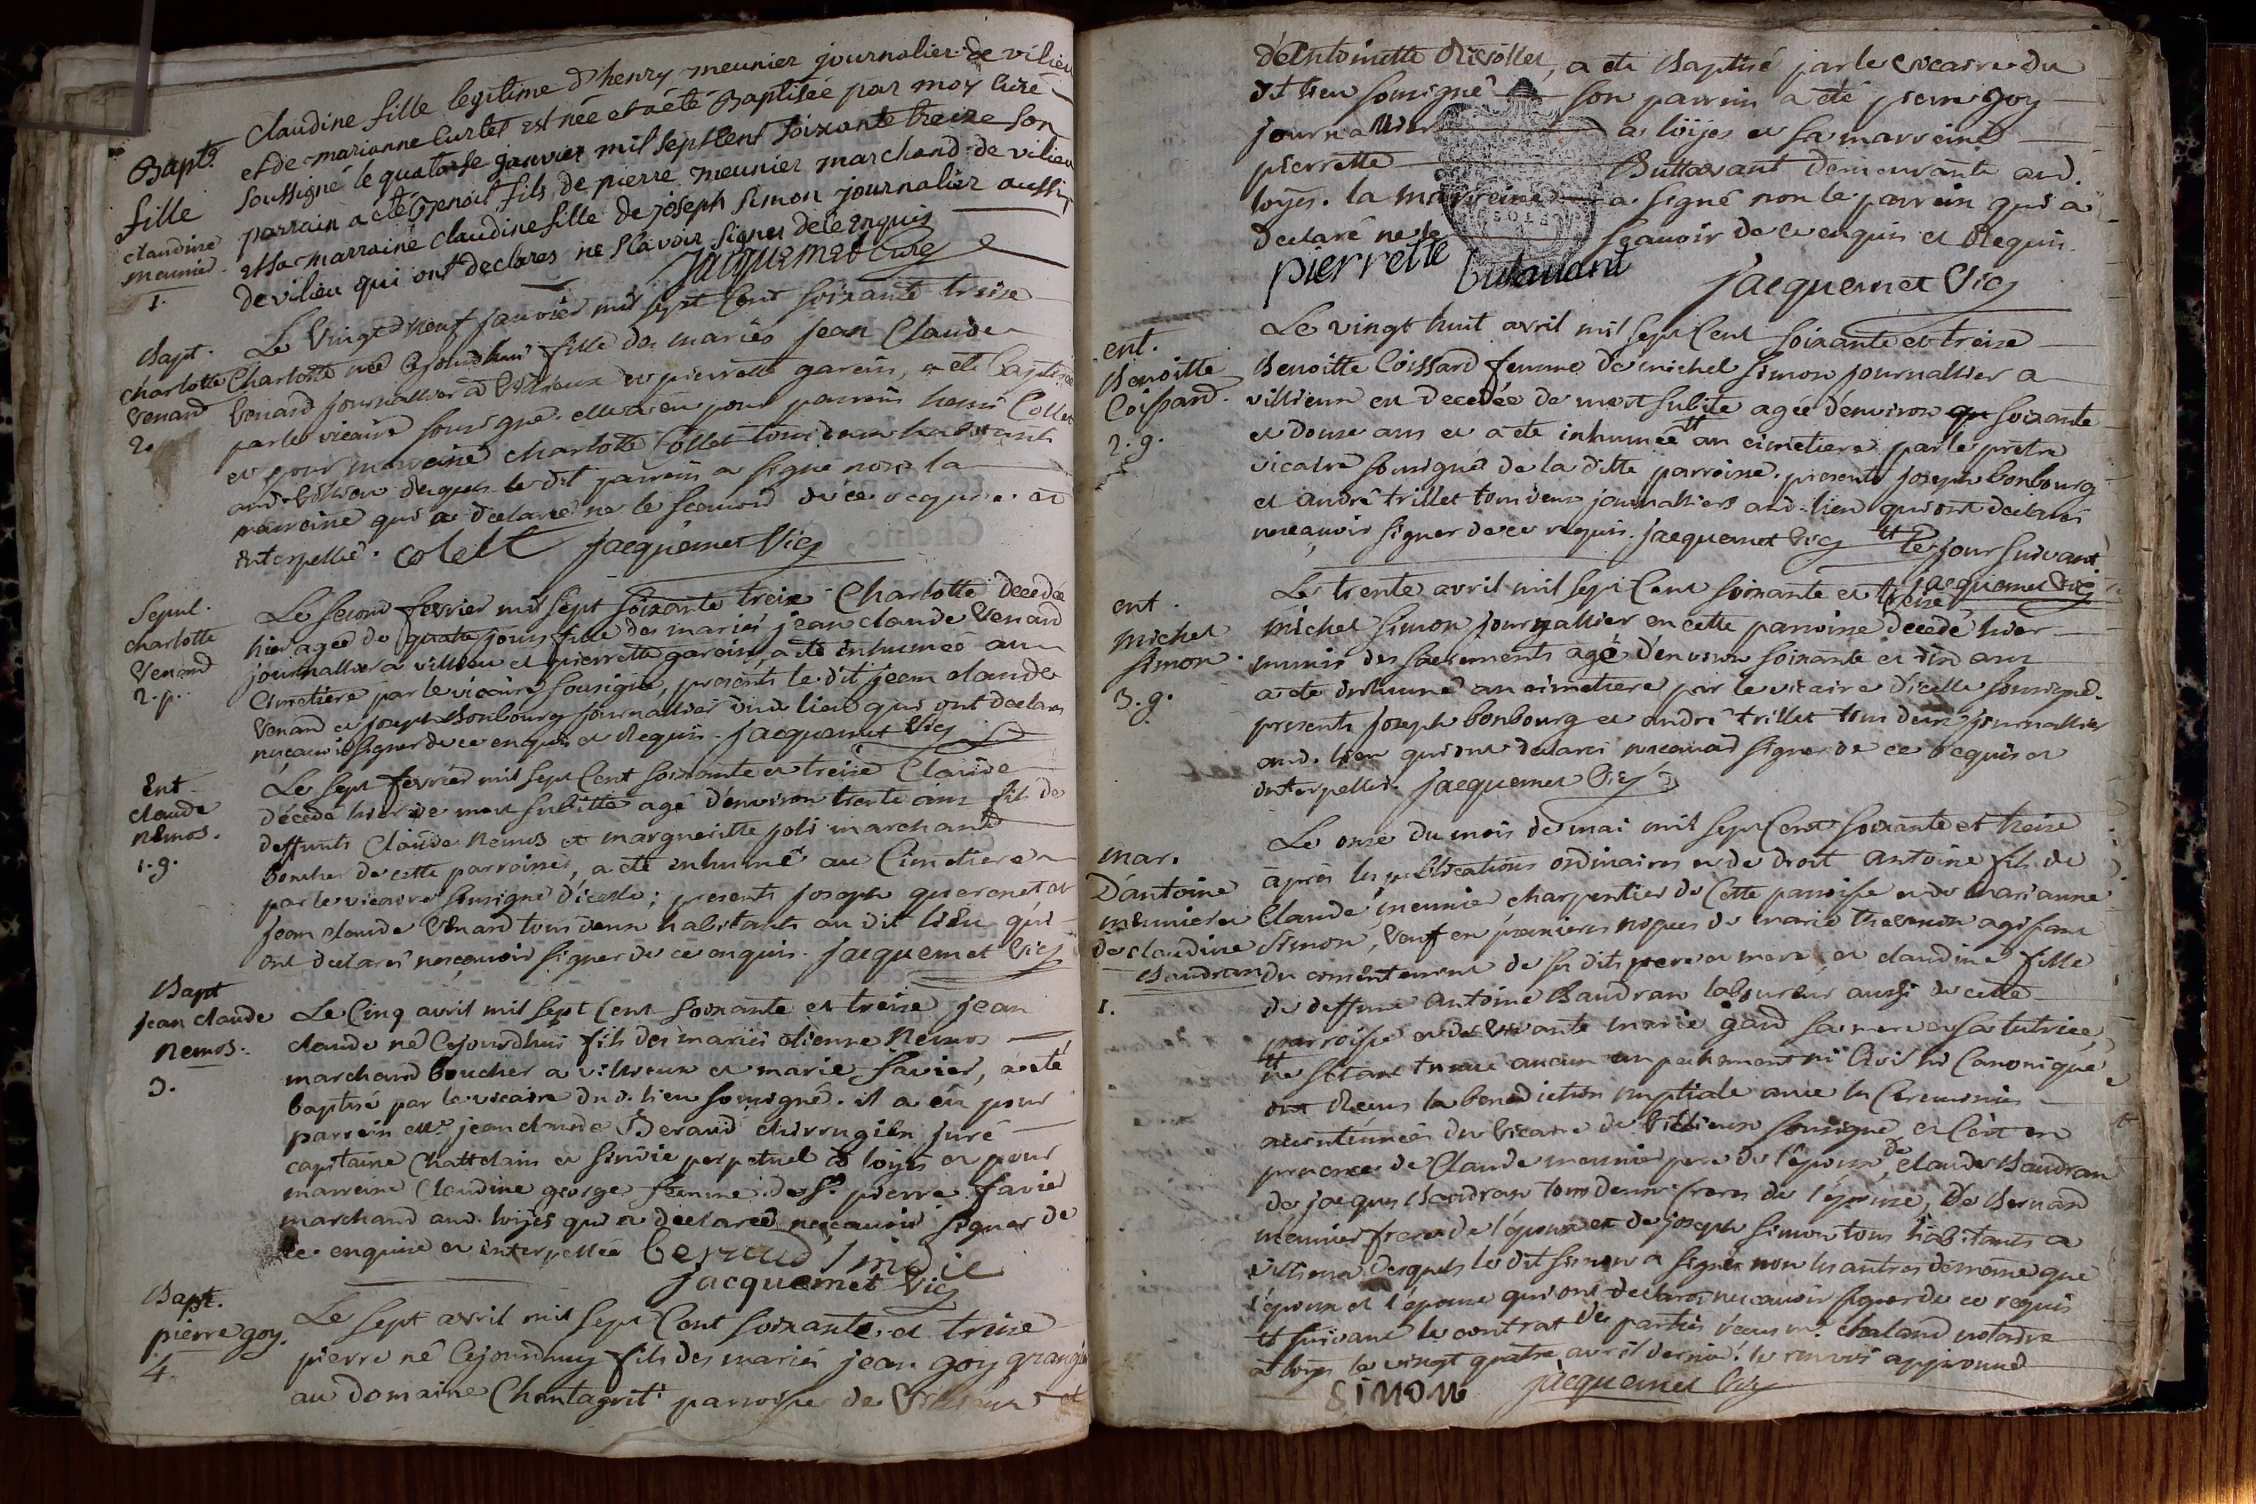 Bapt.
fille
claudine
meunier
1.
Claudine fille legitime d'henry meunier journalier de vilieu
et de marianne Curtet est née et a été Baptisée par moy Curé
soussigné le quatorse janvier mil sept cent soixante treize son
parrain a été Benoit fils de pierre meunier marchand de vilieu
et sa marraine claudine fille de joseph simon journalier aussi
de vilieu qui ont declares ne sçavoir signer de ce enquis
jacquemet Curé
Bapt.
charlotte
Venard
2.
Le Vingt neuf janvier mil sept Cent soixante treise
Charlotte née Cejourdhui fille des mariés jean Claude
Venard journallier a Villieux et pierrette garein, a été baptisée
par le vicaire sousigné. elle a eu pour parrein Collet
et pour marreine charlotte Collet tous deux habitants
aud. Villieu desquels le dit parrein a signé non la
marreine qui a declaré ne le sçavoir de ce requise et
interpellée. colelt jacquemet Vic
Sepul.
charlotte
Venard
2. p.
Le second fevrier mil sept soixante treise Charlotte decedée
hier agée de quatre jours fille des mariés jean claude Venard
journallier a villieu et pierrette garein, a été inhumée au
Cimetiere par le vicaire sousigné, presents le dit jean claude
Venard et joseph Bonbourg journallier dud. lieu qui ont declarés
ne sçavoir signer de ce enquis et Requis. jacquemet Vic
Ent.
claude
nemos.
1. g.
Le sept fevrier mil sept Cent soixante et treise Claude
décédé hier de mort subitte agé d'environ trente ans fils de
deffunts Claude Nemos et margueritte joli marchand
boucher de cette parroisse, a été inhumé au Cimetiere
par le vicaire sousigné d'icelle; presents joseph querenet et
jean claude Venard tous deux habitants au dit lieu qui
ont declarés ne sçavoir signer de ce enquis. jacquemet Vic
Bapt
jean claude
Nemos.
3.
Le Cinq avril mil sept Cent soixante et treise jean
claude né Cejourdhui fils des mariés etienne Nemos
marchand boucher a villieux et marie favier, a été
baptisé par le vicaire dud. lieu sousigné. il a eu pour
parrein mr jean claude Beraud chirurgien juré
capitaine Chattelain et sindic perpetuel de loyes et pour
marreine Claudine george femme de sr pierre favier
marchand aud. loyes qui a declarée ne sçavoir signer de
ce enquise et interpellée beraud sindic
jacquemet Vic
Bapt.
pierre goy.
4.
Le sept avril mil sept Cent soixante et treise
pierre né Cejourdhuy fils des mariés jean goy granger
au domaine Chantagrit parroisse de Villieux et
d'Antoinette Rivollet, a été Baptisé par le vicaire du
dit lieu sousigné son parrein a été pierre goy
journallier a loyes et sa marreine
pierrette Buttavant demeurante aud.
loyes. la marreine a signé non le parrein qui a
declaré ne le sçavoir de ce enquis et Requis.
pierrette butavant
jacquemet Vic
ent.
Benoitte
Coissard.
2. g.
Le vingt huit avril mil sept Cent soixante et treise
Benoitte Coissard femme de michel simon journallier a
villieux est decedée de mort subite agée d'environ soixante
et douse ans et a été inhumée tt au cimetiere par le pretre
vicaire sousigné de la ditte parroisse. presents joseph bonbourg
et andré trillet tous deux journalliers aud. lieu qui ont declarés
ne sçavoir signer de ce requis. jacquemet Vic tt le jour suivant
jacquemet Vic
ent.
michel
simon.
3. g.
Le trente avril mil sept Cent soixante et treise
michel simon journallier en cette parroisse decedé hier
munis des sacrements agé d'environ soixante et dix ans
a été inhumé au cimetiere par le vicaire d'icelle sousigné.
presents joseph bonbourg et andré trillet tous deux journallier
aud. lieu qui ont declarés ne sçavoir signer de ce requis et
interpellés. jacquemet Vic
mar.
D'antoine
meunier et
de claudine
Baudran
1.
Le onse du mois de mai mil sept Cent soixante et treise
après les publications ordinaires et de droit Antoine fils de
Claude meunier charpentier de cette paroisse et de marianne
Simon, veuf en premieres nopces de marie thevenon agissant
du consentement de ses dits pere et mere, et claudine fille
de deffunt Antoine Baudran laboureur aussi de cette
parroisse et de vivante marie gard sa mere et sa tutrice,
tt ne s'étant trouvé aucun empechement ni Civil ni Canonique
ont Recus la benediction nuptiale avec les Ceremonies
accoutumées du Vicaire de Villieux sousigné et C'est en
presence de Claude meunier pere de l'epoux, de claude Baudran
de jacques Baudran tous deux freres de l'épouse, de Bernard
meunier frere de l'époux et de joseph simon tous habitants a
villieux desquels le dit simon a signé non les autres de meme que
l'époux et l'épouse qui ont declarés ne sçavoir signer de ce requis
tt suivant le contrat des parties recu mr. chaland notaire
a loyes le vingt quatre avril dernier. le renvoi approuvé
SIMON jacquemet Vic